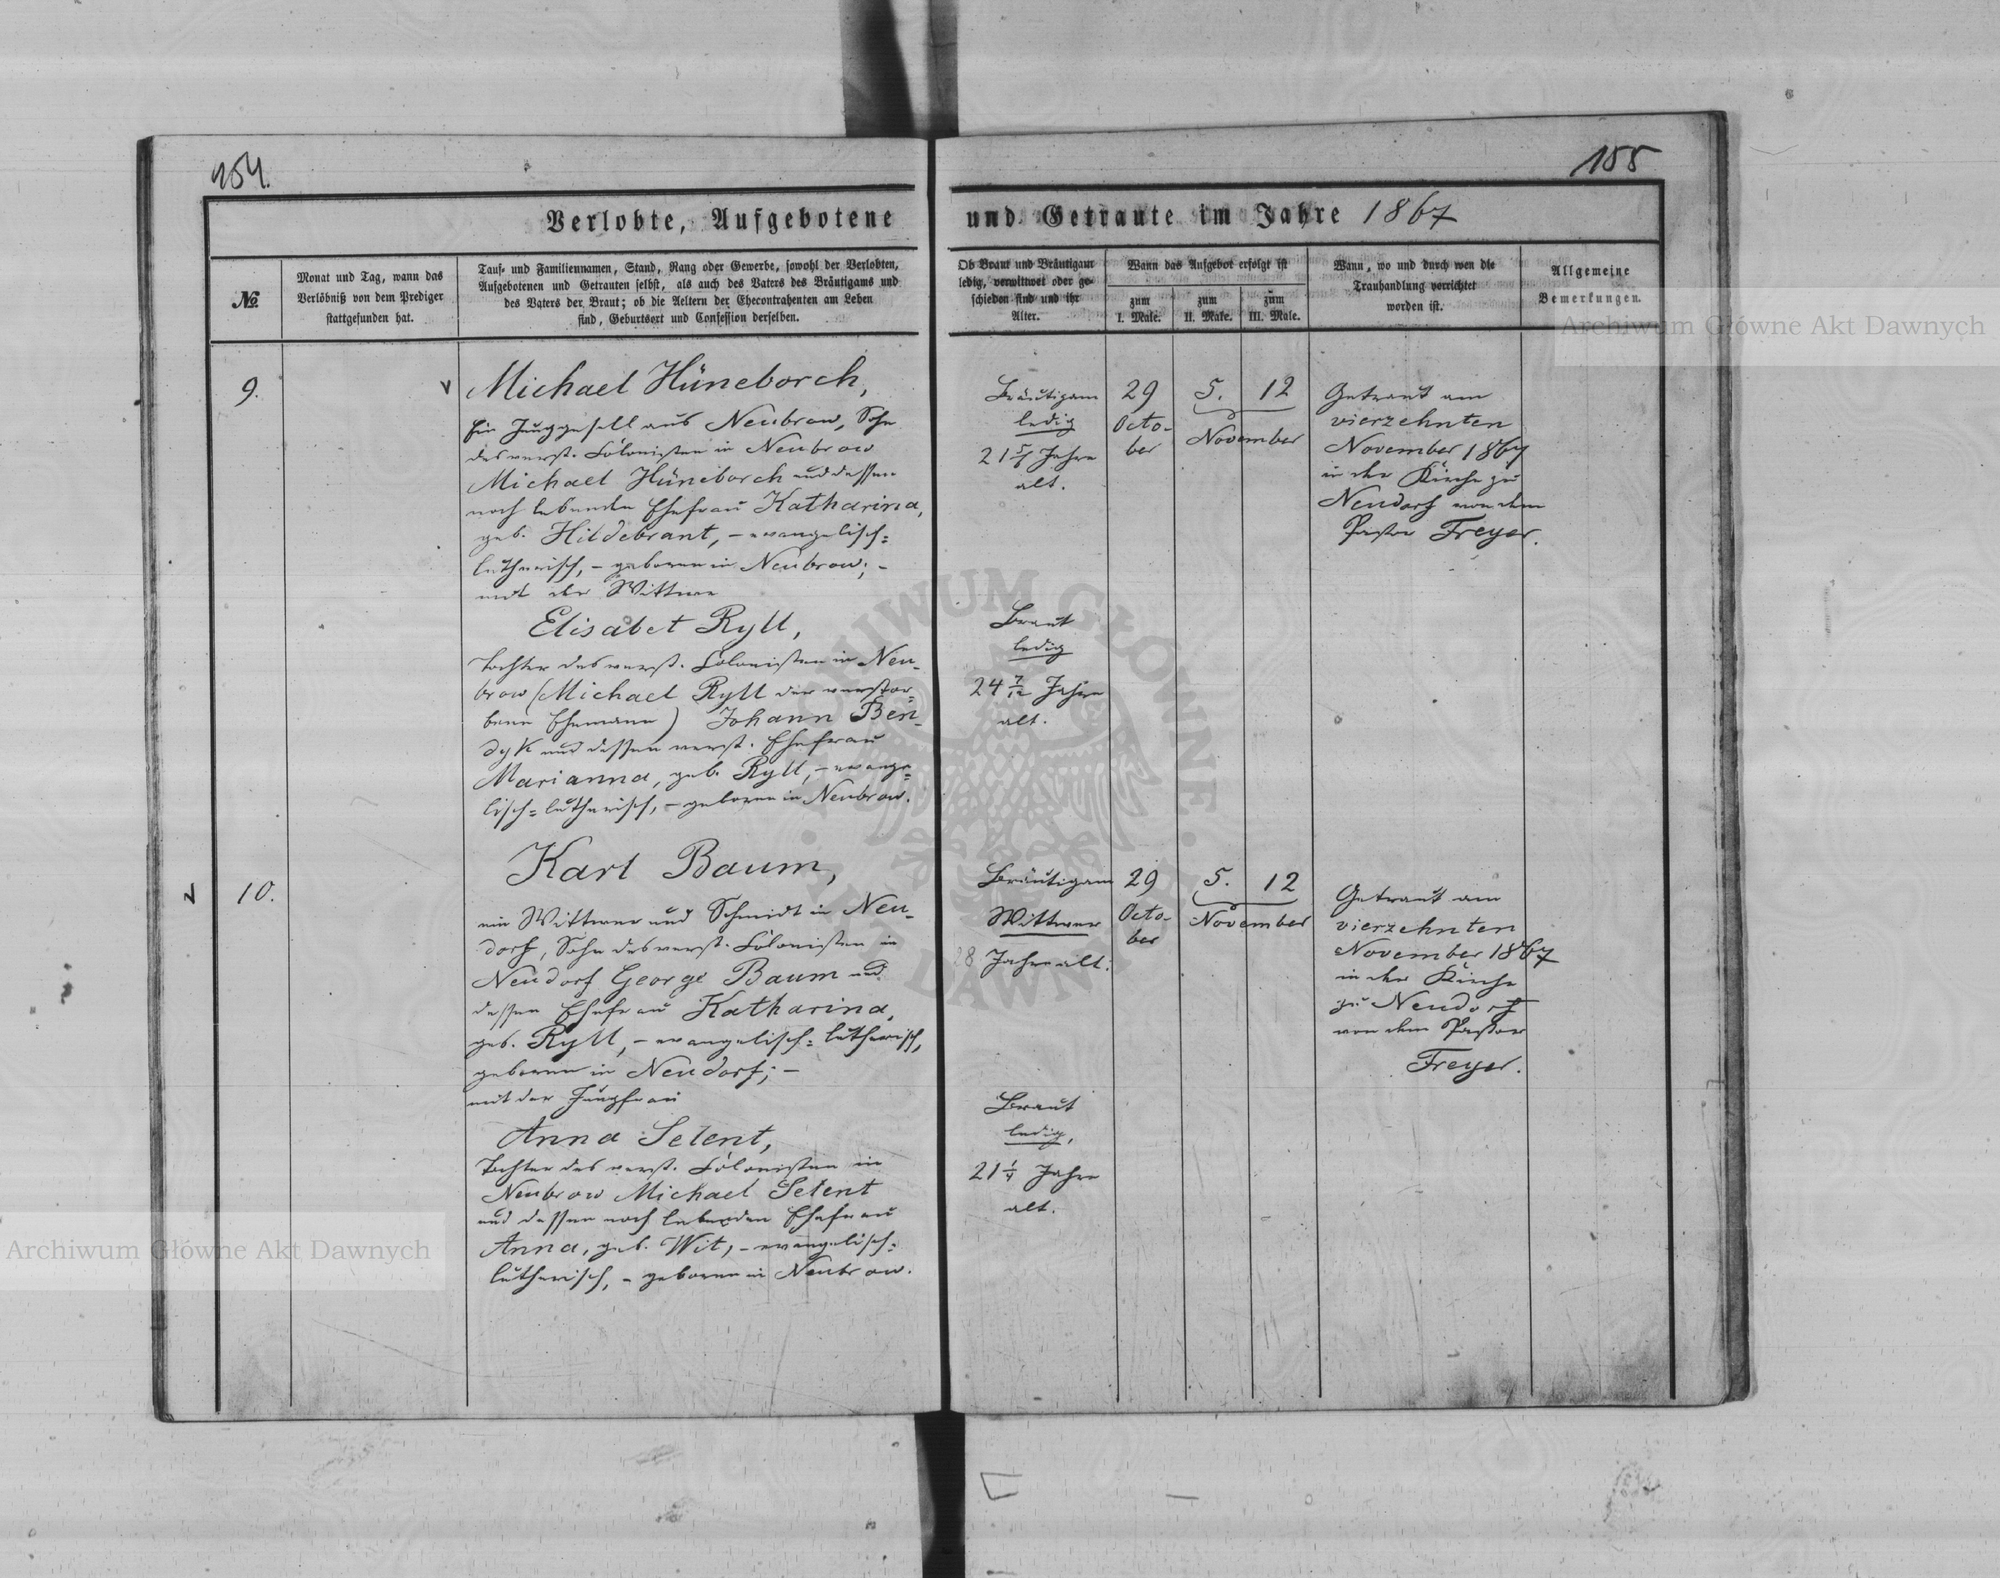 154.
155
Verlobte, Aufgebotene und Getraute im Jahre 1867
№
Monat und Tag, wann das
Verlöbniß von dem Prediger
stattgefunden hat.
Tauf- und Familiennamen, Stand, Rang oder Gewerbe, sowohl der Verlobten,
Aufgebotenen und Getrauten selbst, als auch des Vaters des Bräutigams und
des Vaters der Braut; ob die Aeltern der Ehecontrahenten am Leben
sind, Geburtsort und Confession derselben.
Ob Braut und Bräutigam
ledig, verwittwet oder ge-
schieden sind und ihr
Alter.
Wann das Aufgebot erfolgt ist
zum
I. Male.
zum
II. Male.
zum
III. Male.
Wann, wo und durch wen die
Trauhandlung verrichtet
worden ist.
Allgemeine
Bemerkungen.
9.
Michael Hüneborch,
Ein Junggesell aus Neubrow, Sohn
des verst. Colonisten in Neubrow
Michael Hüneborch und dessen
noch lebende Ehefrau Katharina,
geb. Hildebrant, – evangelisch=
lutherisch, – geboren in Neubrow; –
mit der Wittwe
Elisabet Ryll,
Tochter des verst. Colonisten in Neu-
brow (Michael Ryll der verstor-
bene Ehemann) Johann Ben-
dyk und dessen verst. Ehefrau
Marianna, geb. Ryll, – evange=
lisch=lutherisch, – geboren in Neubrow.
Bräutigam
ledig
21 5/6 Jahre
alt.
Braut
ledig
24 7/12 Jahre
alt.
29
Octo-
ber
5. 12
November
Getraut am
vierzehnten
November 1867
in der Kirche zu
Neudorf von dem
Pastor Freyer.
10.
Karl Baum,
ein Wittwer und Schmidt in Neu-
dorf, Sohn des verst. Colonisten in
Neudorf George Baum und
dessen Ehefrau Katharina,
geb. Ryll, – evangelisch=lutherisch,
geboren in Neudorf; –
mit der Jungfrau
Anna Selent,
Tochter des verst. Colonisten in
Neubrow Michael Selent
und dessen noch lebenden Ehefrau
Anna, geb. Wit, – evangelisch=
lutherisch, – geboren in Neubrow.
Bräutigam
Wittwer
28 Jahre alt.
Braut
ledig,
21 1/4 Jahre
alt.
29
Octo-
ber
5. 12
November
Getraut am
vierzehnten
November 1867
in der Kirche
zu Neudorf
von dem Pastor
Freyer.
Archiwum Główne Akt Dawnych
Archiwum Główne Akt Dawnych
ARCHIWUM GŁÓWNE AKT DAWNYCH